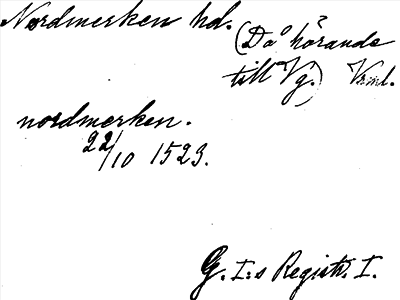 Nordmerken hd.
(Då hörande
till Vg.) Vrml.
nordmerken.
22/10 1523.
G. I:s Registr. I.